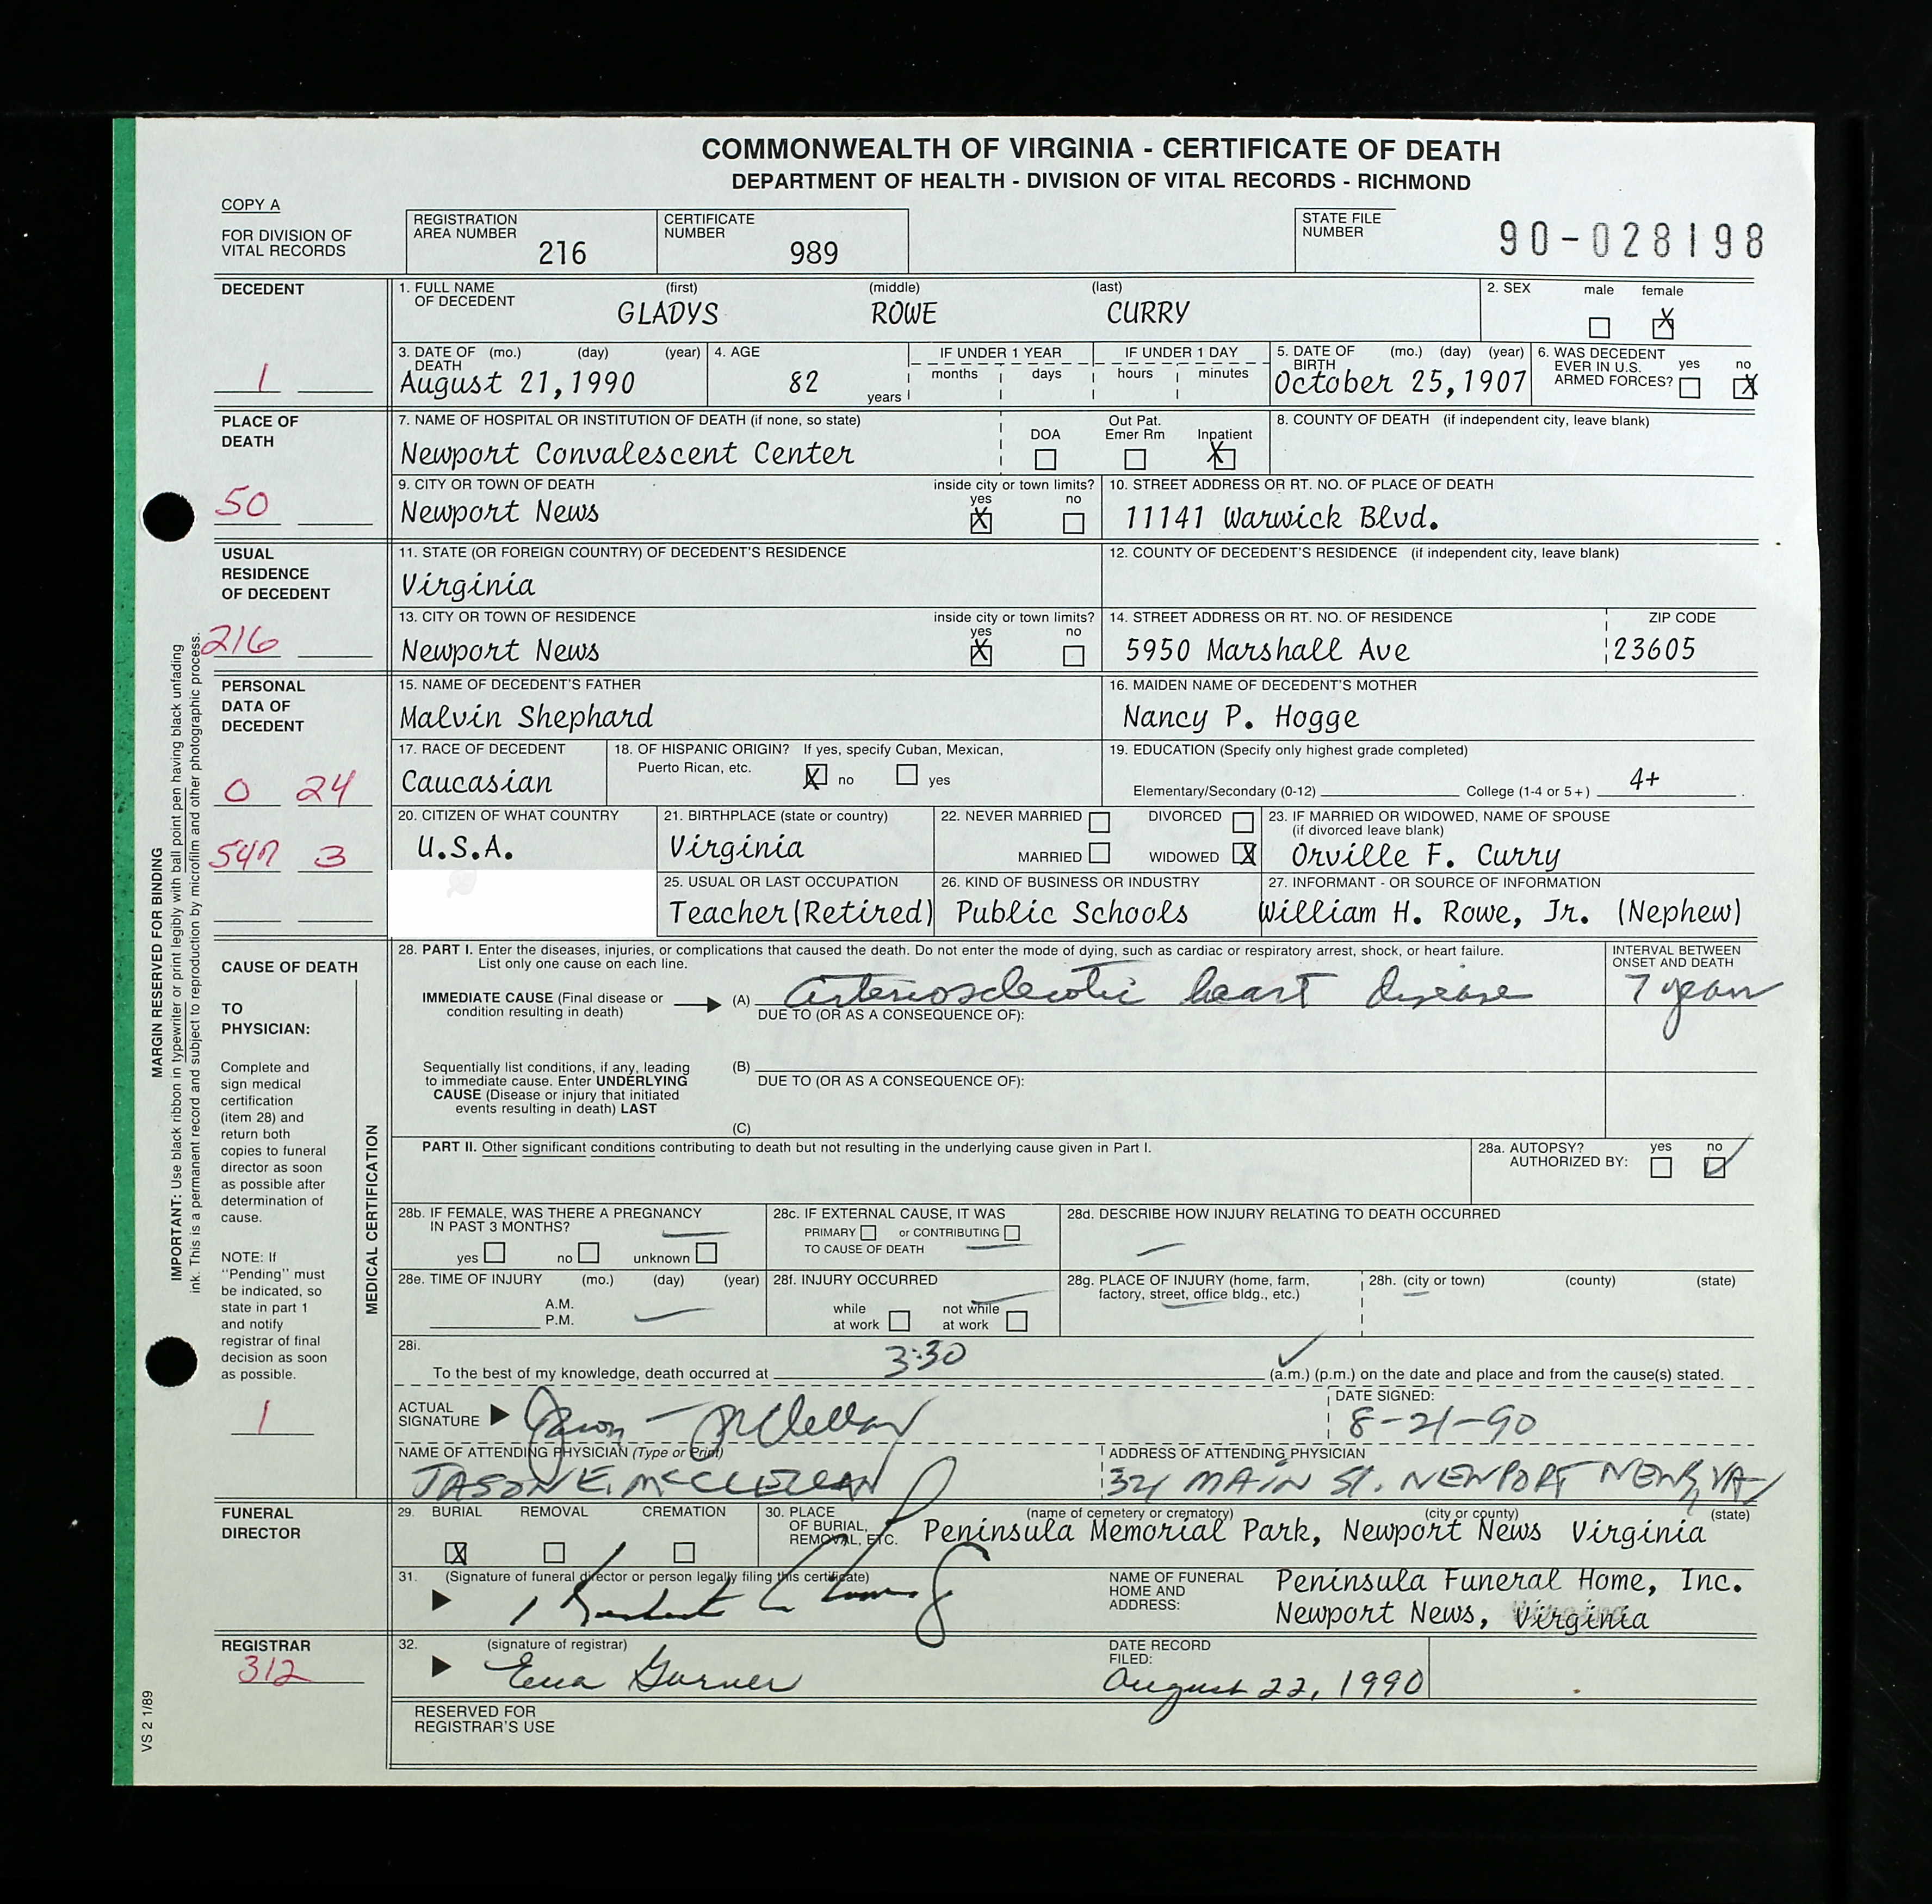 COMMONWEALTH OF VIRGINIA - CERTIFICATE OF DEATH
DEPARTMENT OF HEALTH - DIVISION OF VITAL RECORDS - RICHMOND
COPY A
FOR DIVISION OF
VITAL RECORDS
REGISTRATION
AREA NUMBER
216
CERTIFICATE
NUMBER
989
STATE FILE
NUMBER
90-028198
DECEDENT
1
1. FULL NAME (first) (middle) (last)
OF DECEDENT
GLADYS ROWE CURRY
2. SEX male female
X
3. DATE OF (mo.) (day) (year)
DEATH
August 21, 1990
4. AGE
82
years
IF UNDER 1 YEAR
months days
IF UNDER 1 DAY
hours minutes
5. DATE OF (mo.) (day) (year)
BIRTH
October 25, 1907
6. WAS DECEDENT
EVER IN U.S. yes no
ARMED FORCES? X
PLACE OF
DEATH
50
7. NAME OF HOSPITAL OR INSTITUTION OF DEATH (if none, so state)
Newport Convalescent Center
DOA
Out Pat.
Emer Rm
Inpatient
X
8. COUNTY OF DEATH (if independent city, leave blank)
9. CITY OR TOWN OF DEATH
Newport News
inside city or town limits?
yes no
X
10. STREET ADDRESS OR RT. NO. OF PLACE OF DEATH
11141 Warwick Blvd.
USUAL
RESIDENCE
OF DECEDENT
216
11. STATE (OR FOREIGN COUNTRY) OF DECEDENT'S RESIDENCE
Virginia
12. COUNTY OF DECEDENT'S RESIDENCE (if independent city, leave blank)
13. CITY OR TOWN OF RESIDENCE
Newport News
inside city or town limits?
yes no
X
14. STREET ADDRESS OR RT. NO. OF RESIDENCE
5950 Marshall Ave
ZIP CODE
23605
PERSONAL
DATA OF
DECEDENT
0 24
547 3
15. NAME OF DECEDENT'S FATHER
Malvin Shephard
16. MAIDEN NAME OF DECEDENT'S MOTHER
Nancy P. Hogge
17. RACE OF DECEDENT
Caucasian
18. OF HISPANIC ORIGIN? If yes, specify Cuban, Mexican,
Puerto Rican, etc. X no yes
19. EDUCATION (Specify only highest grade completed)
Elementary/Secondary (0-12) College (1-4 or 5+) 4+
20. CITIZEN OF WHAT COUNTRY
U.S.A.
21. BIRTHPLACE (state or country)
Virginia
22. NEVER MARRIED DIVORCED
MARRIED WIDOWED X
23. IF MARRIED OR WIDOWED, NAME OF SPOUSE
(if divorced leave blank)
Orville F. Curry
25. USUAL OR LAST OCCUPATION
Teacher (Retired)
26. KIND OF BUSINESS OR INDUSTRY
Public Schools
27. INFORMANT - OR SOURCE OF INFORMATION
William H. Rowe, Jr. (Nephew)
CAUSE OF DEATH
TO
PHYSICIAN:
Complete and
sign medical
certification
(item 28) and
return both
copies to funeral
director as soon
as possible after
determination of
cause.
NOTE: If
"Pending" must
be indicated, so
state in part 1
and notify
registrar of final
decision as soon
as possible.
1
MEDICAL CERTIFICATION
28. PART I. Enter the diseases, injuries, or complications that caused the death. Do not enter the mode of dying, such as cardiac or respiratory arrest, shock, or heart failure.
List only one cause on each line.
INTERVAL BETWEEN
ONSET AND DEATH
IMMEDIATE CAUSE (Final disease or
condition resulting in death)
(A) arteriosclerotic heart disease
7 years
DUE TO (OR AS A CONSEQUENCE OF):
Sequentially list conditions, if any, leading
to immediate cause. Enter UNDERLYING
CAUSE (Disease or injury that initiated
events resulting in death) LAST
(B)
DUE TO (OR AS A CONSEQUENCE OF):
(C)
PART II. Other significant conditions contributing to death but not resulting in the underlying cause given in Part I.
28a. AUTOPSY? yes no
AUTHORIZED BY: ✓
28b. IF FEMALE, WAS THERE A PREGNANCY
IN PAST 3 MONTHS?
yes no unknown
28c. IF EXTERNAL CAUSE, IT WAS
PRIMARY or CONTRIBUTING
TO CAUSE OF DEATH
28d. DESCRIBE HOW INJURY RELATING TO DEATH OCCURRED
28e. TIME OF INJURY (mo.) (day) (year)
A.M.
P.M.
28f. INJURY OCCURRED
while
at work
not while
at work
28g. PLACE OF INJURY (home, farm,
factory, street, office bldg., etc.)
28h. (city or town) (county) (state)
28i.
To the best of my knowledge, death occurred at 3:30 ✓ (a.m.) (p.m.) on the date and place and from the cause(s) stated.
ACTUAL
SIGNATURE
Jason McClellan
DATE SIGNED:
8-21-90
NAME OF ATTENDING PHYSICIAN (Type or Print)
JASON E. MCCLELLAN
ADDRESS OF ATTENDING PHYSICIAN
321 MAIN St. NEWPORT NEWS, VA
FUNERAL
DIRECTOR
29. BURIAL REMOVAL CREMATION
X
30. PLACE
OF BURIAL,
REMOVAL, ETC.
(name of cemetery or crematory) (city or county) (state)
Peninsula Memorial Park, Newport News Virginia
31. (Signature of funeral director or person legally filing this certificate)
NAME OF FUNERAL
HOME AND
ADDRESS:
Peninsula Funeral Home, Inc.
Newport News, Virginia
REGISTRAR
312
32. (signature of registrar)
DATE RECORD
FILED:
August 22, 1990
RESERVED FOR
REGISTRAR'S USE
MARGIN RESERVED FOR BINDING
IMPORTANT: Use black ribbon in typewriter or print legibly with ball point pen having black unfading
ink. This is a permanent record and subject to reproduction by microfilm and other photographic process.
VS 2 1/89